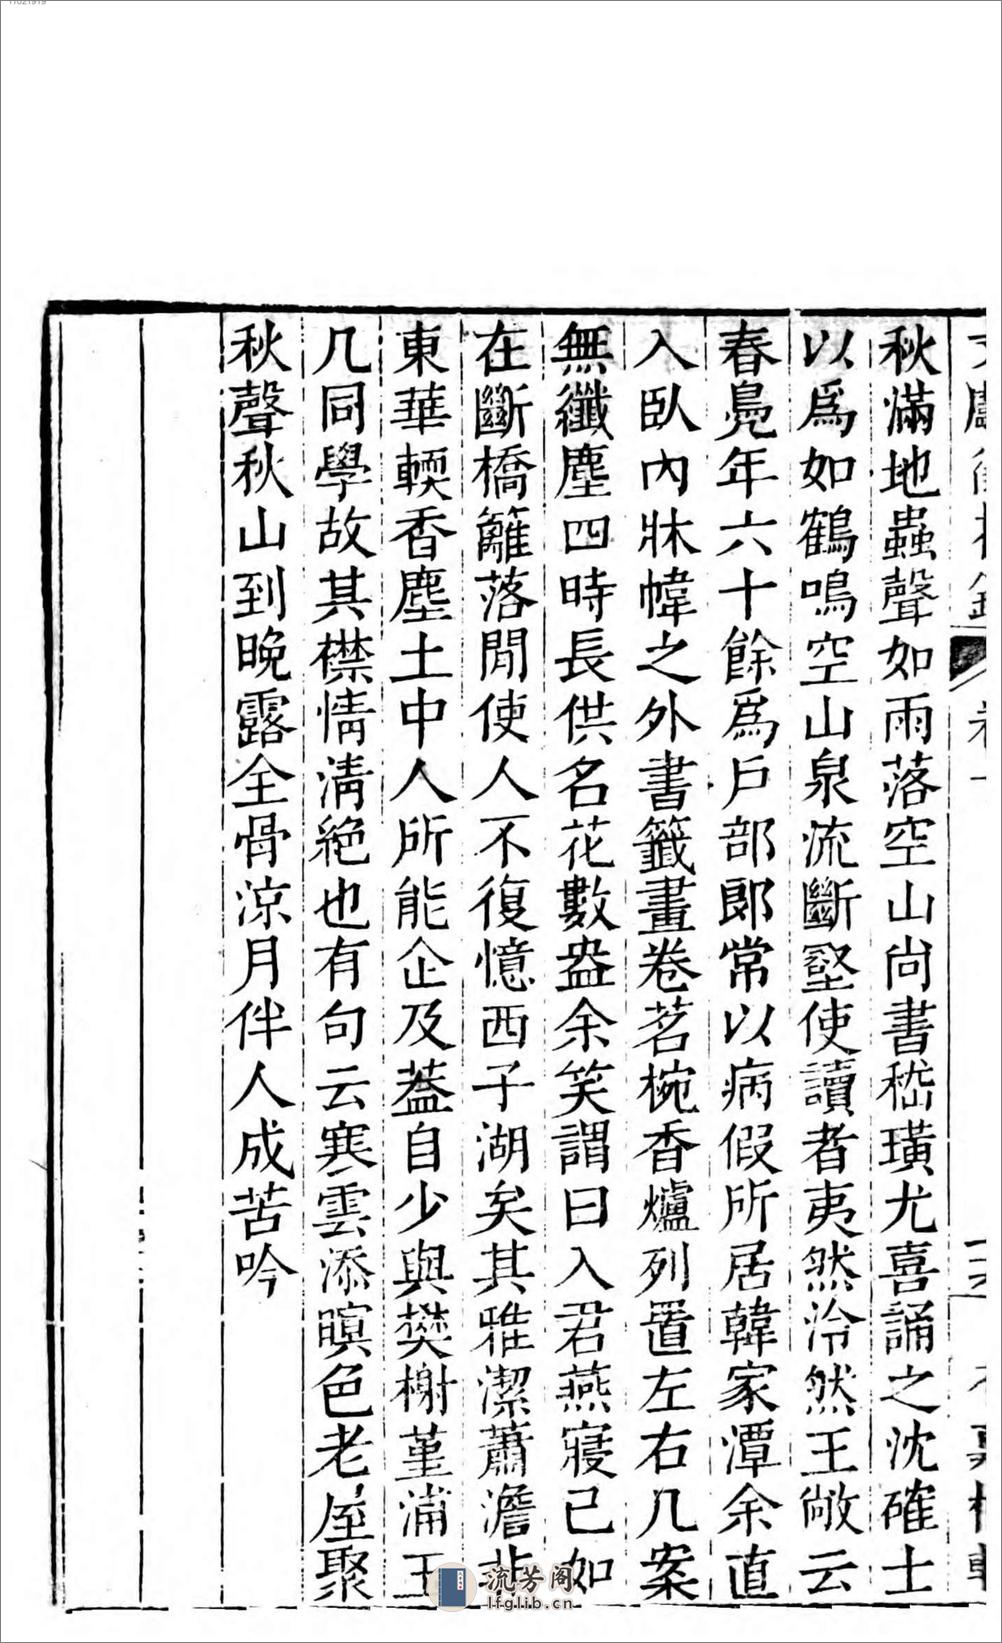 秋滿地蟲聲如雨落空山尚書嵇璜尤喜誦之沈確士
以爲如鶴鳴空山泉流斷壑使讀者夷然泠然王敞云
春鳧年六十餘爲戶部郎常以病假所居韓家潭余直
入臥內牀幃之外書籤畫卷茗椀香爐列置左右几案
無纖塵四時長供名花數盎余笑謂曰入君燕寢已如
在斷橋籬落閒使人不復憶西子湖矣其雅潔蕭澹非
東華輭香塵土中人所能企及蓋自少與樊榭堇浦王
几同學故其襟情淸絶也有句云寒雲添暝色老屋聚
秋聲秋山到晚露全骨涼月伴人成苦吟
流芳阁
lfglib.cn